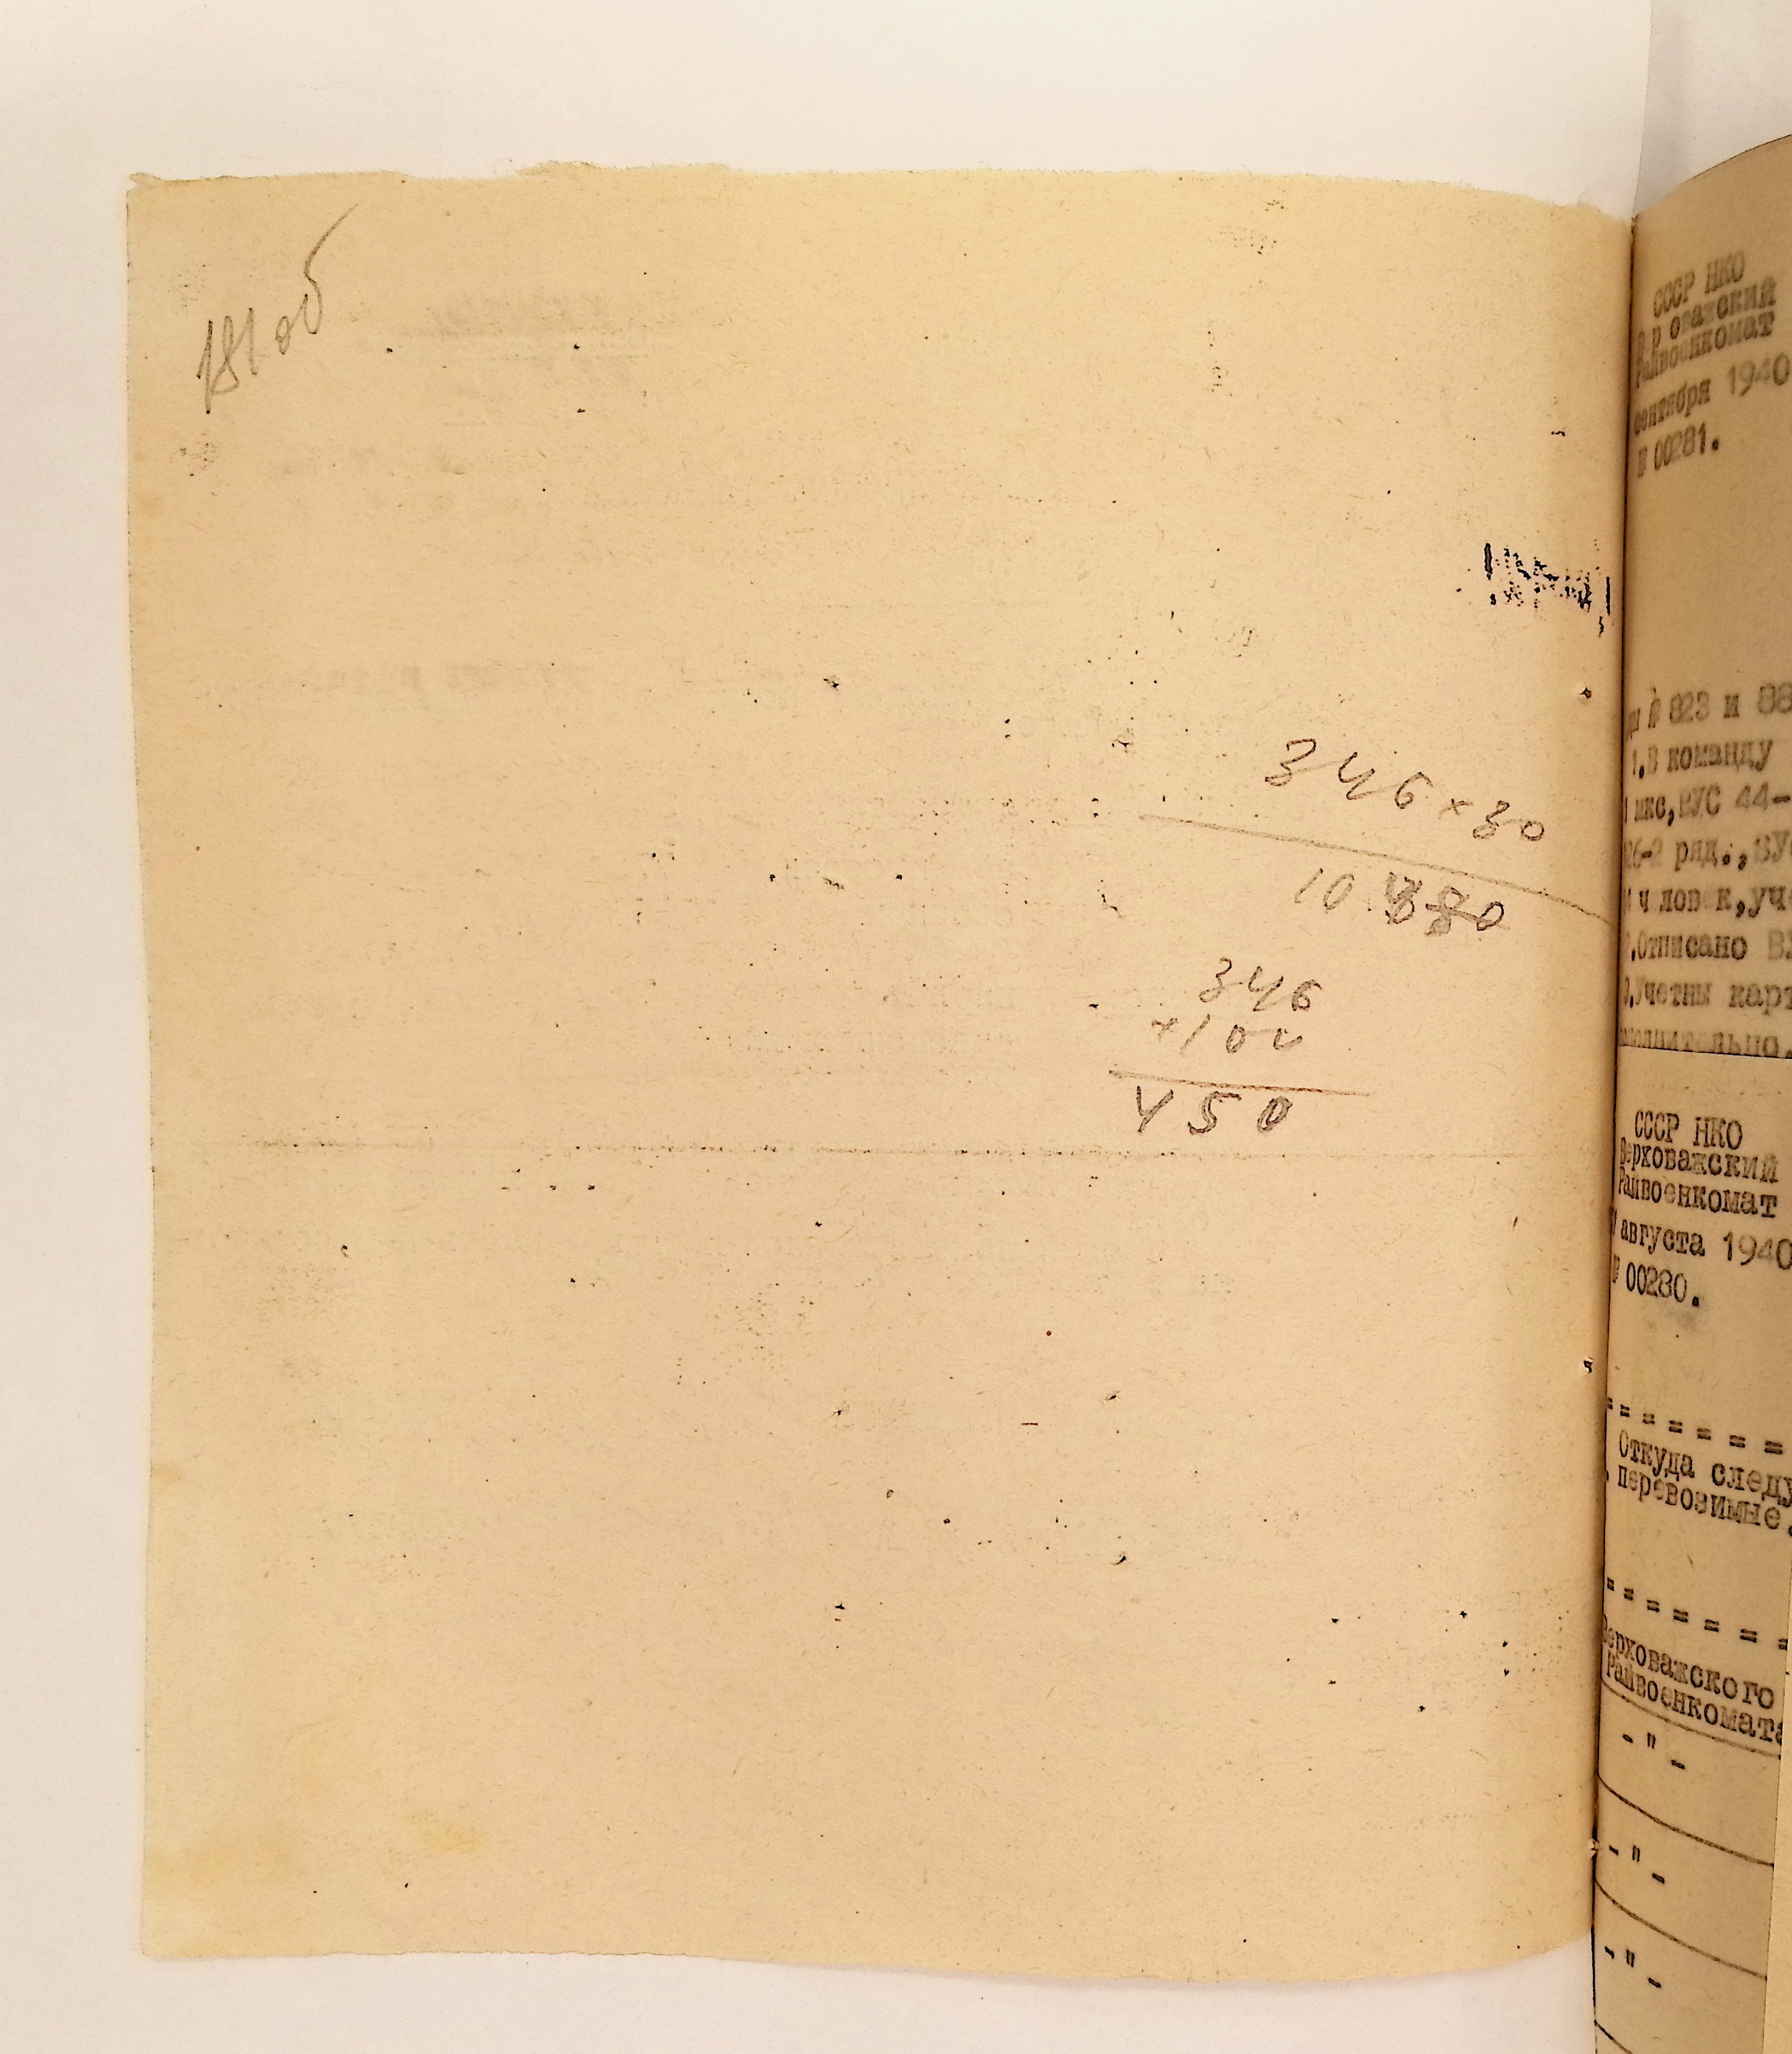 181 об
346 × 30
10 380
346
+ 104
450
СССР НКО
Райвоенкомат
сентября 1940
№ 00281.
№ 823 и 88
1.В команду
мкс,ВУС 44-
26-2 ряд.,ВУ
ч лов к,уч
.Отписано
.Учетны карт
СССР НКО
Верховажский
Райвоенкомат
августа 1940
№ 00280.
= = = = = =
Откуда следу
перевозимые.
= = = = = = =
Верховажского
Райвоенкомата
- " -
- " -
- " -